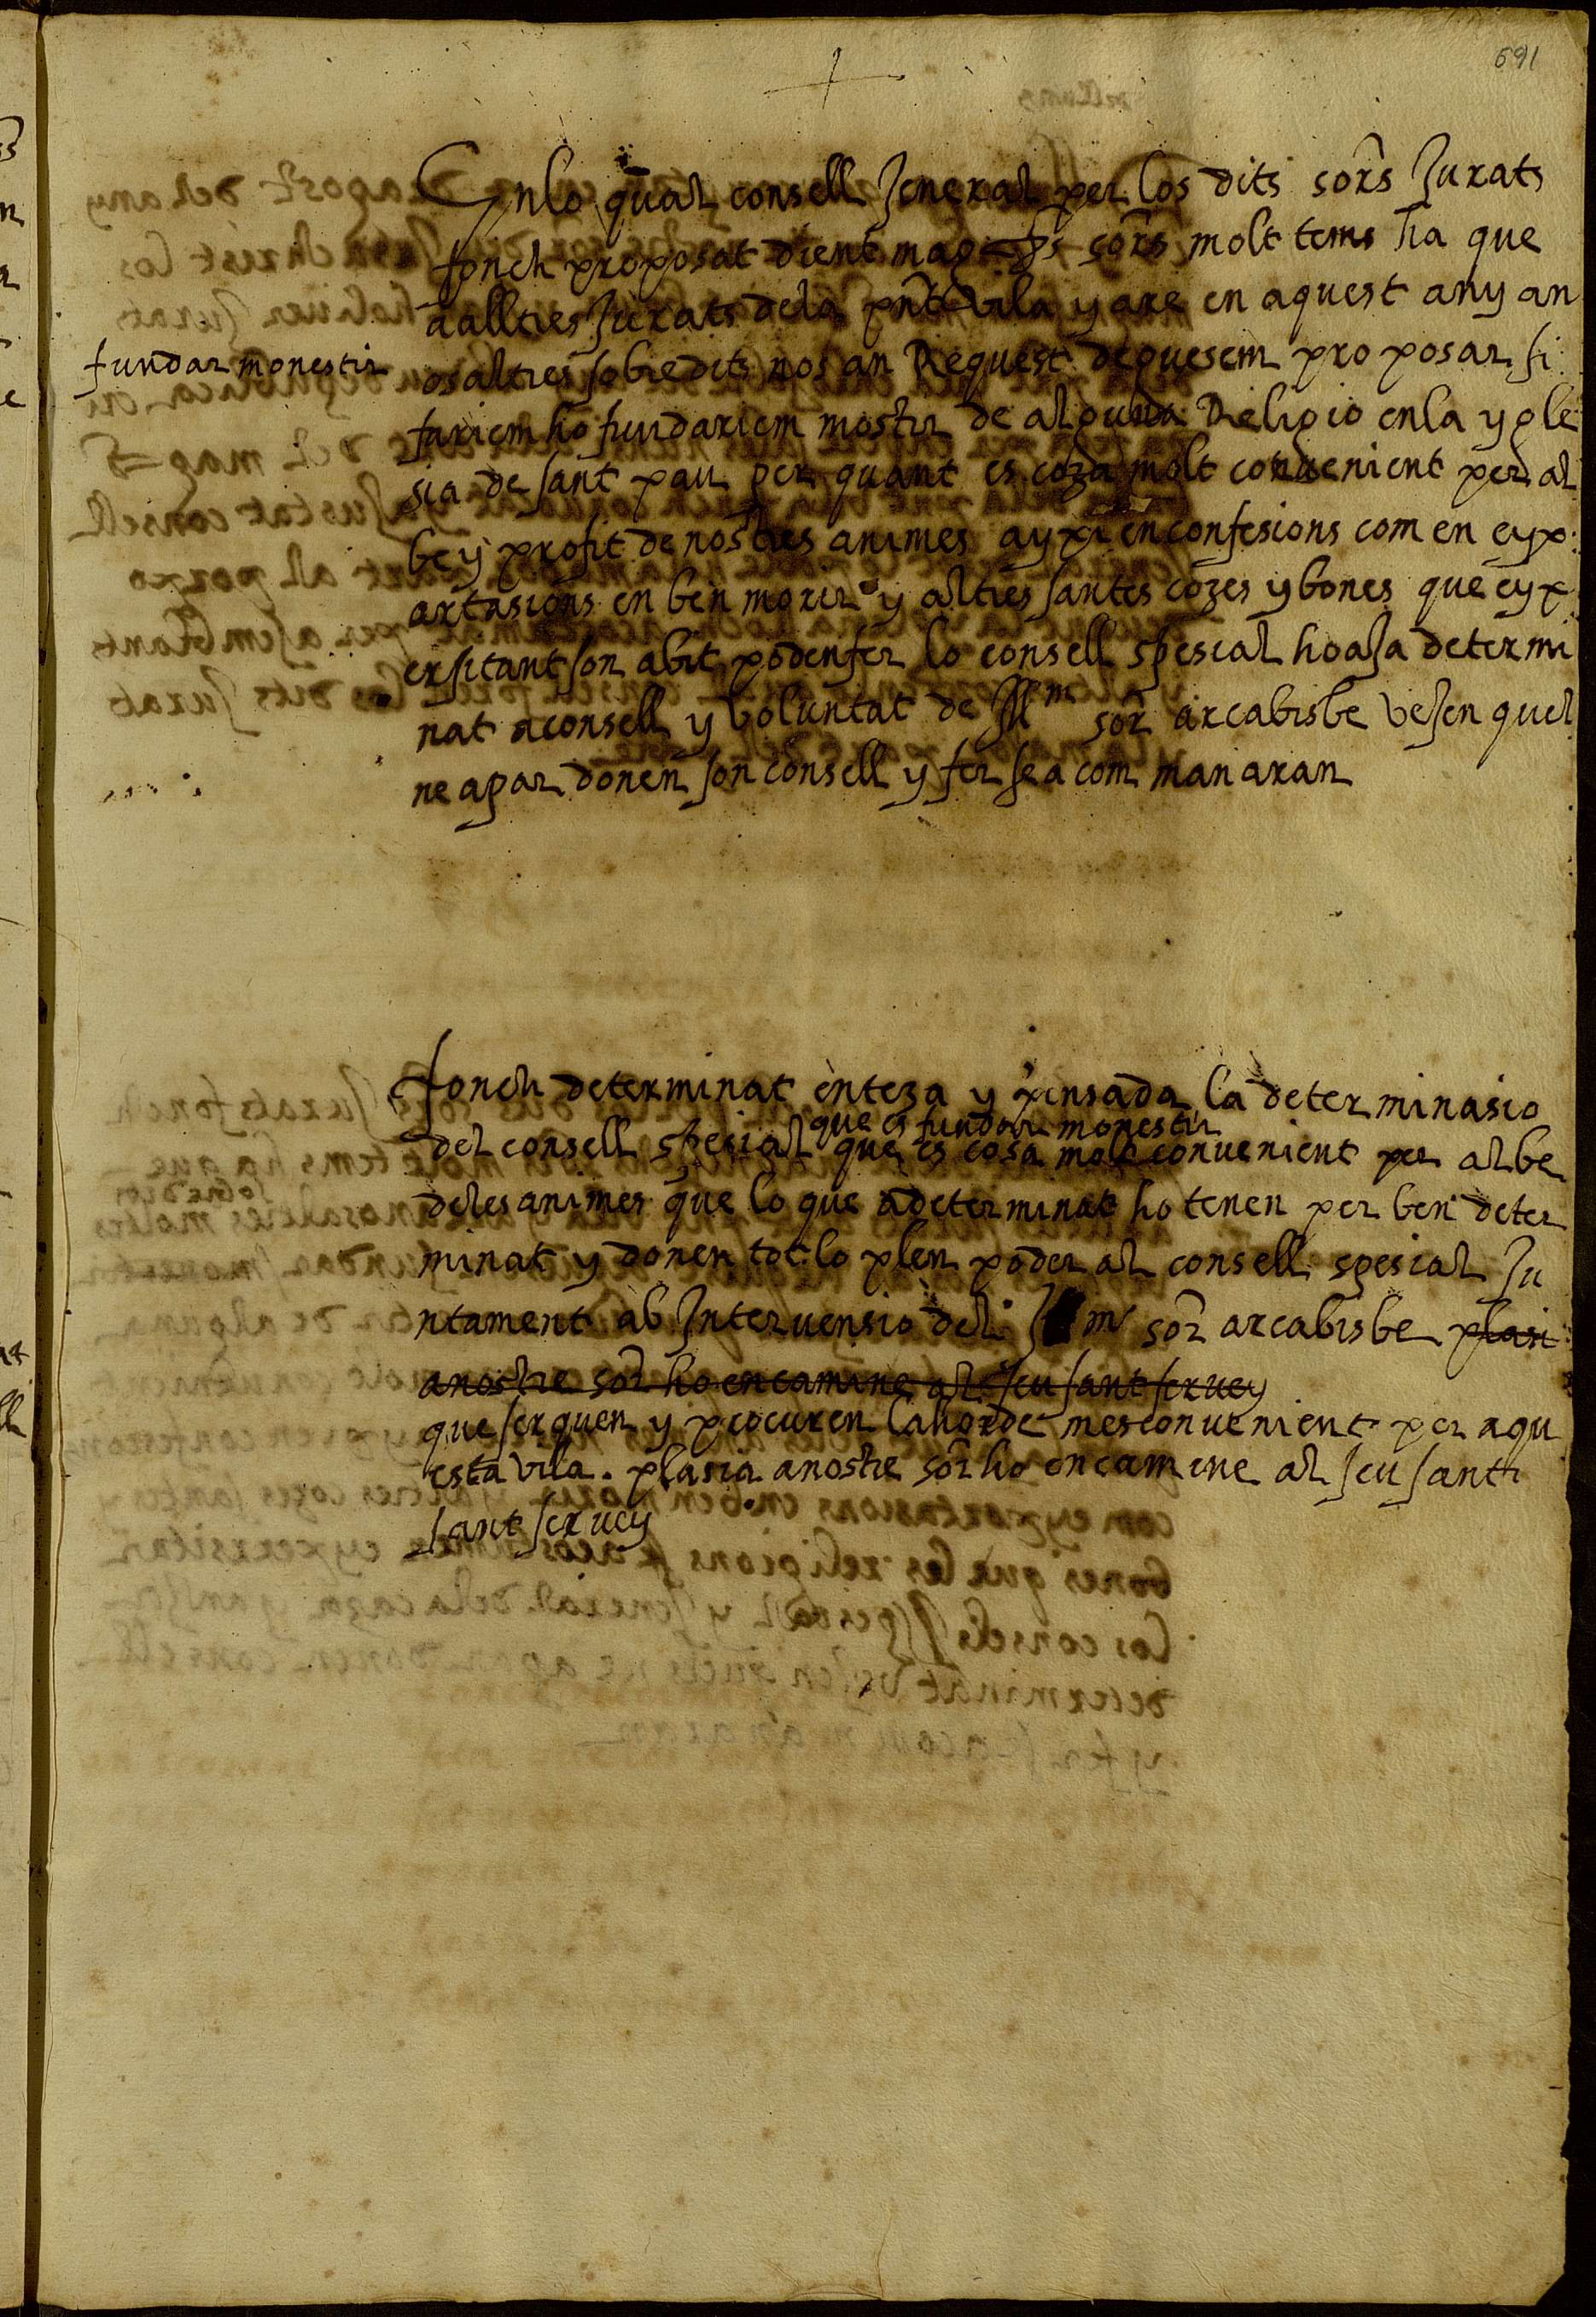 691
Enlo qual consell Jeneral per los dits sors Jurats
fonch proposat dient mag fs sors molt tems ha que
aalltres Jurats dela pnt vila y are en aquest any an
fundar monestir
osaltres sobredits nos an Request deguesem pro posar si
fariem ho fundariem mostir de alguna Religio enla ygle
sia de sant pau per quant es coza molt convenient per al
be y profit de nostres animes ayxi en confesions com en eyx
artasions en ben morir y altres santes cozes y bones que eyx
ersitant son abit poden fer lo consell spesial hoasa determi
nat aconsell y voluntat de Illm sor arcabisbe vesen quel
ne apar donen son consell y fer sea com manaran
fonch determinat enteza y pensada la determinasio
que es fundar monestir
del consell spesial que es cosa molt convenient per al be
deles animes que lo que adeterminat ho tenen per ben deter
minat y donen tot lo plen poder al consell spesial Ju
ntament ab Intervensio del m sor arcabisbe plasi
anostre sor ho encamine al seu sant servey
que serquen y procuren lahorde mes convenient per aqu
esta vila. plasia anostre sor ho encamine al seu santi
sant servey